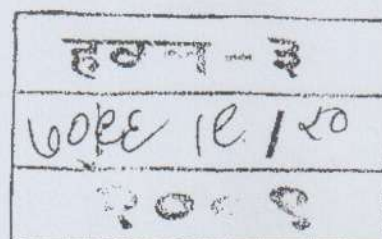 हवल - ३
७०९९ / ९ / २०
२००९